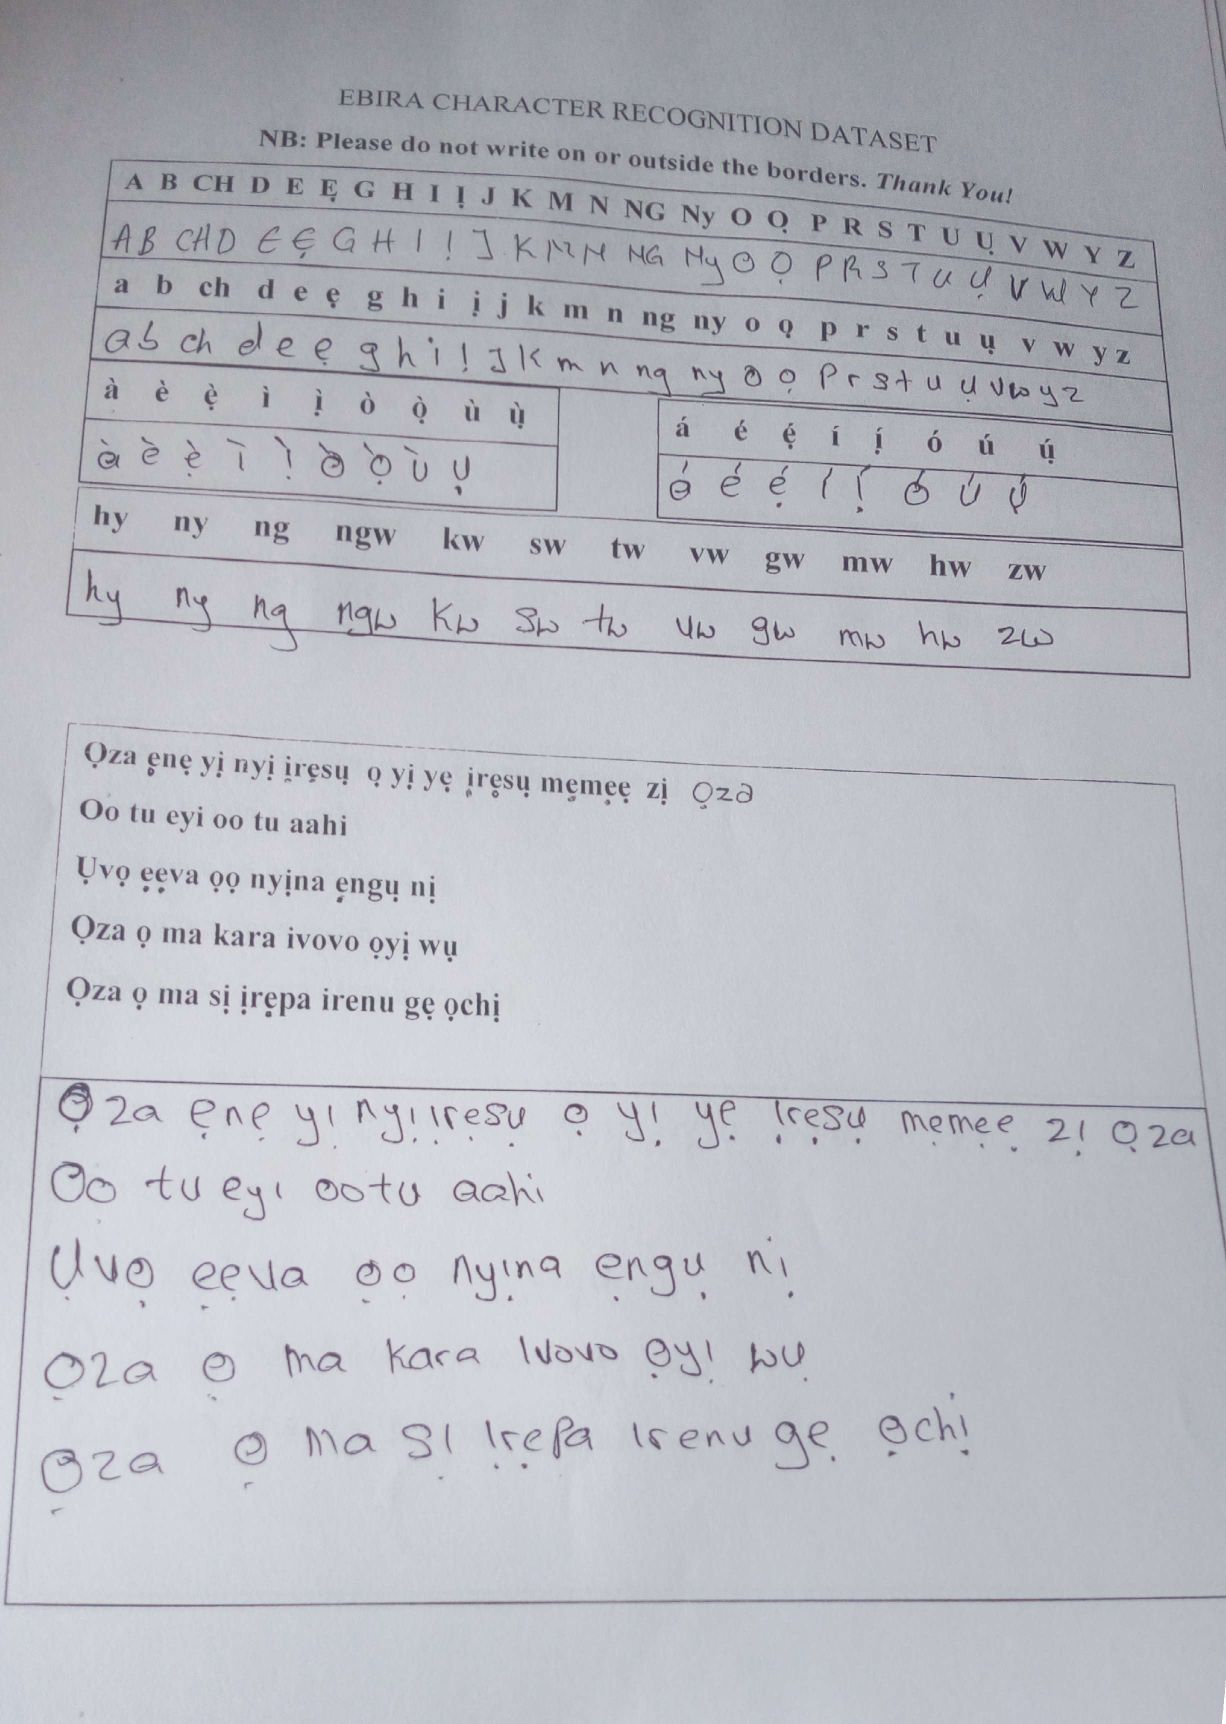 EBIRA CHARACTER RECOGNITION DATASET
NB: Please do not write on or outside the borders. Thank You!
A B CH D E Ẹ G H I Ị J K M N NG Ny O Ọ P R S T U Ụ V W Y Z
A B CH D E Ẹ G H I Ị J K M N NG Ny O Ọ P R S T U Ụ V W Y Z
a b ch d e ẹ g h i ị j k m n ng ny o ọ p r s t u ụ v w y z
a b ch d e ẹ g h i ị J K m n ng ny o ọ P r s t u ụ v w y z
à è ẹ̀ ì ị̀ ò ọ̀ ù ụ̀
à è ẹ̀ ì ị̀ ò ọ̀ ù ụ
á é ẹ́ í ị́ ó ú ụ́
á é ẹ́ í ị́ ó ú ụ́
hy ny ng ngw kw sw tw vw gw mw hw zw
hy ny ng ngw kw sw tw vw gw mw hw zw
Ọza ẹnẹ yị nyị ịrẹsụ ọ yị yẹ ịrẹsụ mẹmẹẹ zị Ọza
Oo tu eyi oo tu aahi
Ụvọ ẹẹva ọọ nyịna ẹngụ nị
Ọza ọ ma kara ivovo ọyị wụ
Ọza ọ ma sị ịrẹpa irenu gẹ ọchị
Ọza ẹnẹ yị nyị ịrẹsụ ọ yị yẹ ịrẹsụ mẹmẹẹ zị Ọza
Oo tu eyi oo tu aahi
Ụvọ ẹẹva ọọ nyịna ẹngụ nị
Ọza ọ ma kara ivovo ọyị wụ
Ọza ọ ma sị ịrẹpa irenu gẹ ọchị